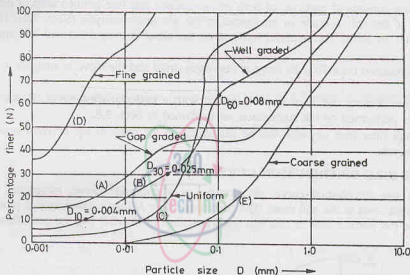 100
90
80
70
60
50
40
30
20
10
0
Percentage finer (N)
Well graded
Fine grained
D60=0·08mm
(D)
Gap graded
D30=0·025mm
Coarse grained
(A)
(B)
Uniform
D10=0·004mm
(C)
(E)
0·001
0·01
0·1
1·0
10·0
Particle size D (mm)